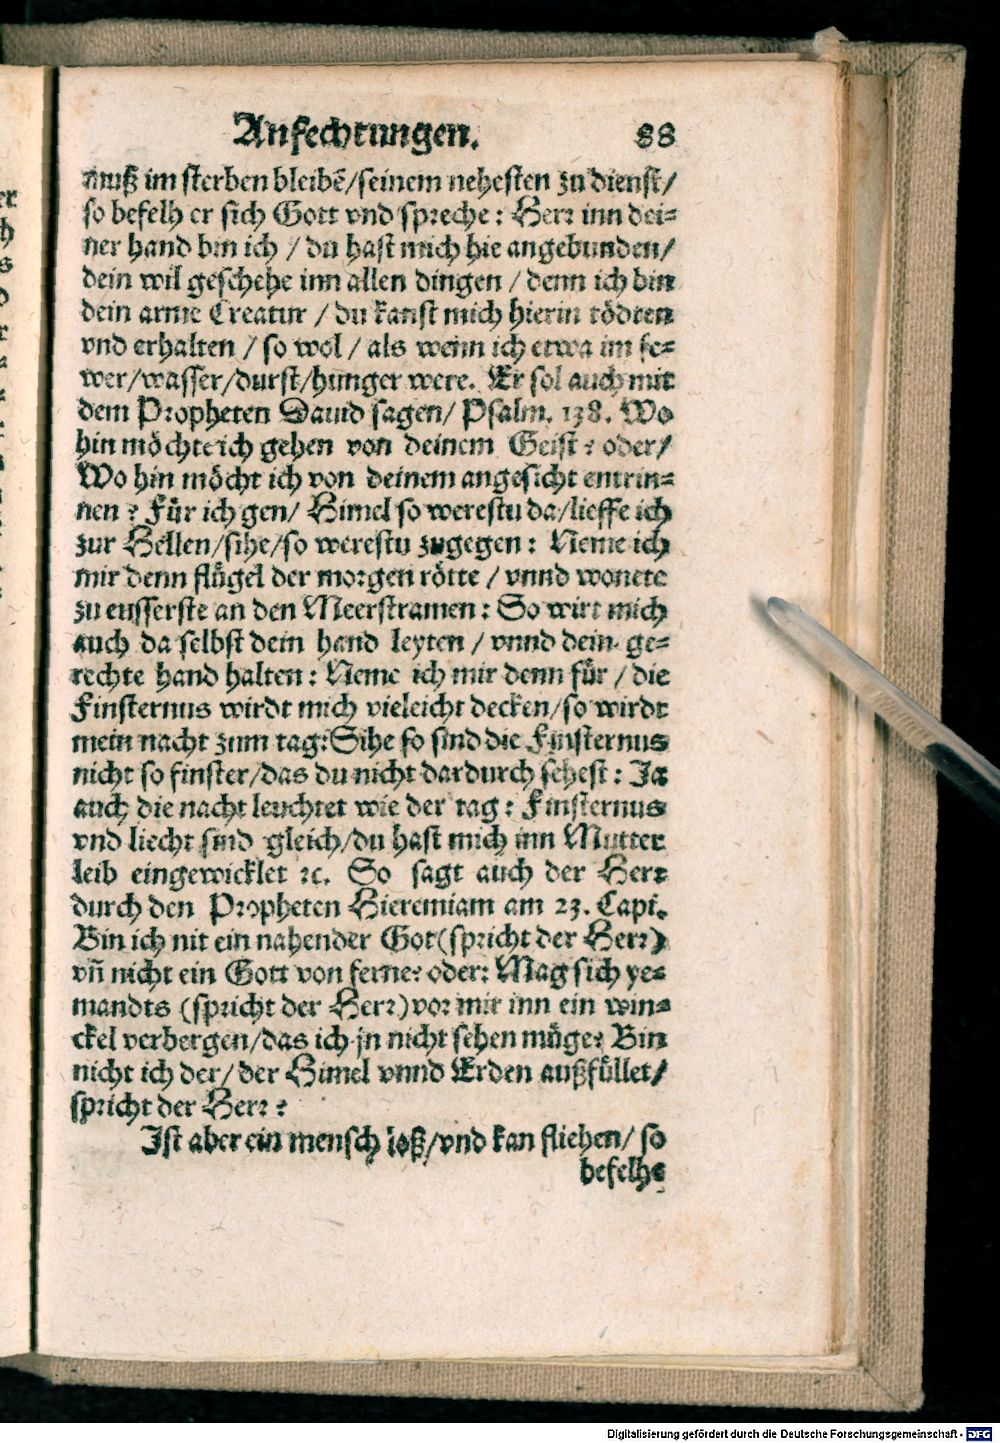 Anfechtungen. 88
muß im sterben bleibẽ/seinem nehesten zu dienst/
so befelh er sich Gott vnd spreche: Herr inn dei=
ner hand bin ich / du hast mich hie angebunden/
dein wil geschehe inn allen dingen / denn ich bin
dein arme Creatur / du kanst mich hierin tödten
vnd erhalten / so wol / als wenn ich etwa im fe=
wer/wasser/durst/hunger were. Er sol auch mit
dem Propheten Dauid sagen/ Psalm. 138. Wo
hin möchte ich gehen von deinem Geist? oder/
Wo hin möcht ich von deinem angesicht entrin=
nen? Für ich gen/ Himel so werestu da/lieffe ich
zur Hellen/sihe/so werestu zugegen: Neme ich
mir denn flügel der morgen rötte / vnnd wonete
zu eusserste an den Meerstramen: So wirt mich
auch da selbst dein hand leyten / vnnd dein ge=
rechte hand halten: Neme ich mir denn für / die
Finsternus wirdt mich vieleicht decken/so wirdt
mein nacht zum tag:Sihe so sind die Finsternus
nicht so finster/das du nicht dardurch sehest: Ja
auch die nacht leuchtet wie der tag: Finsternus
vnd liecht sind gleich/du hast mich inn Mutter
leib eingewicklet ꝛc. So sagt auch der Herr
durch den Propheten Hieremiam am 23. Capi.
Bin ich nit ein nahender Got(spricht der Herr)
vñ nicht ein Gott von ferne? oder: Mag sich ye=
mandts (spricht der Herr) vor mir inn ein win=
ckel verbergen/das ich jn nicht sehen müge? Bin
nicht ich der/ der Himel vnnd Erden außfüllet/
spricht der Herr?
Ist aber ein mensch loß/vnd kan fliehen/ so
befelhe
Digitalisierung gefördert durch die Deutsche Forschungsgemeinschaft - DFG